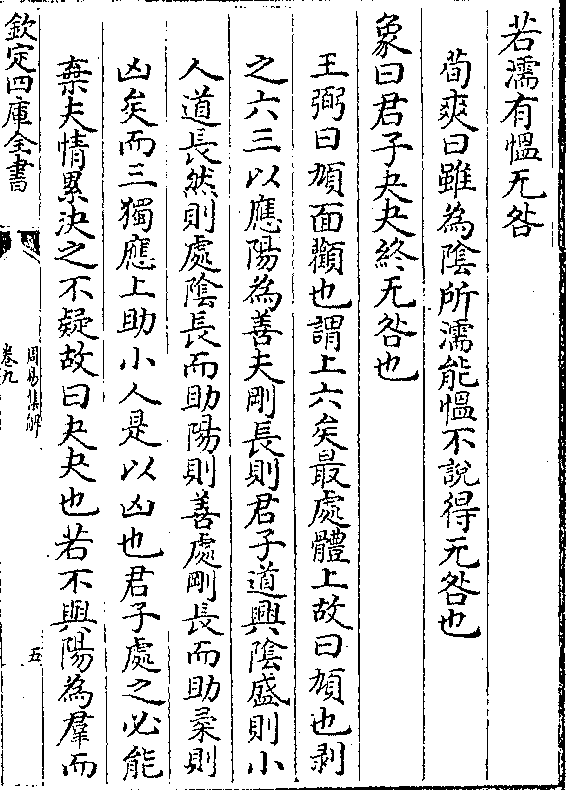 若濡有愠无咎
荀爽曰雖為陰所濡能愠不說得无咎也
象曰君子夬夬終无咎也
王弼曰頄面顴也謂上六矣最處體上故曰頄也剥
之六三以應陽為善夫剛長則君子道興陰盛則小
人道長然則處陰長而助陽則善處剛長而助柔則
凶矣而三獨應上助小人是以凶也君子處之必能
棄夫情累決之不疑故曰夬夬也若不與陽為羣而
欽定四庫全書
周易集解
卷九
五